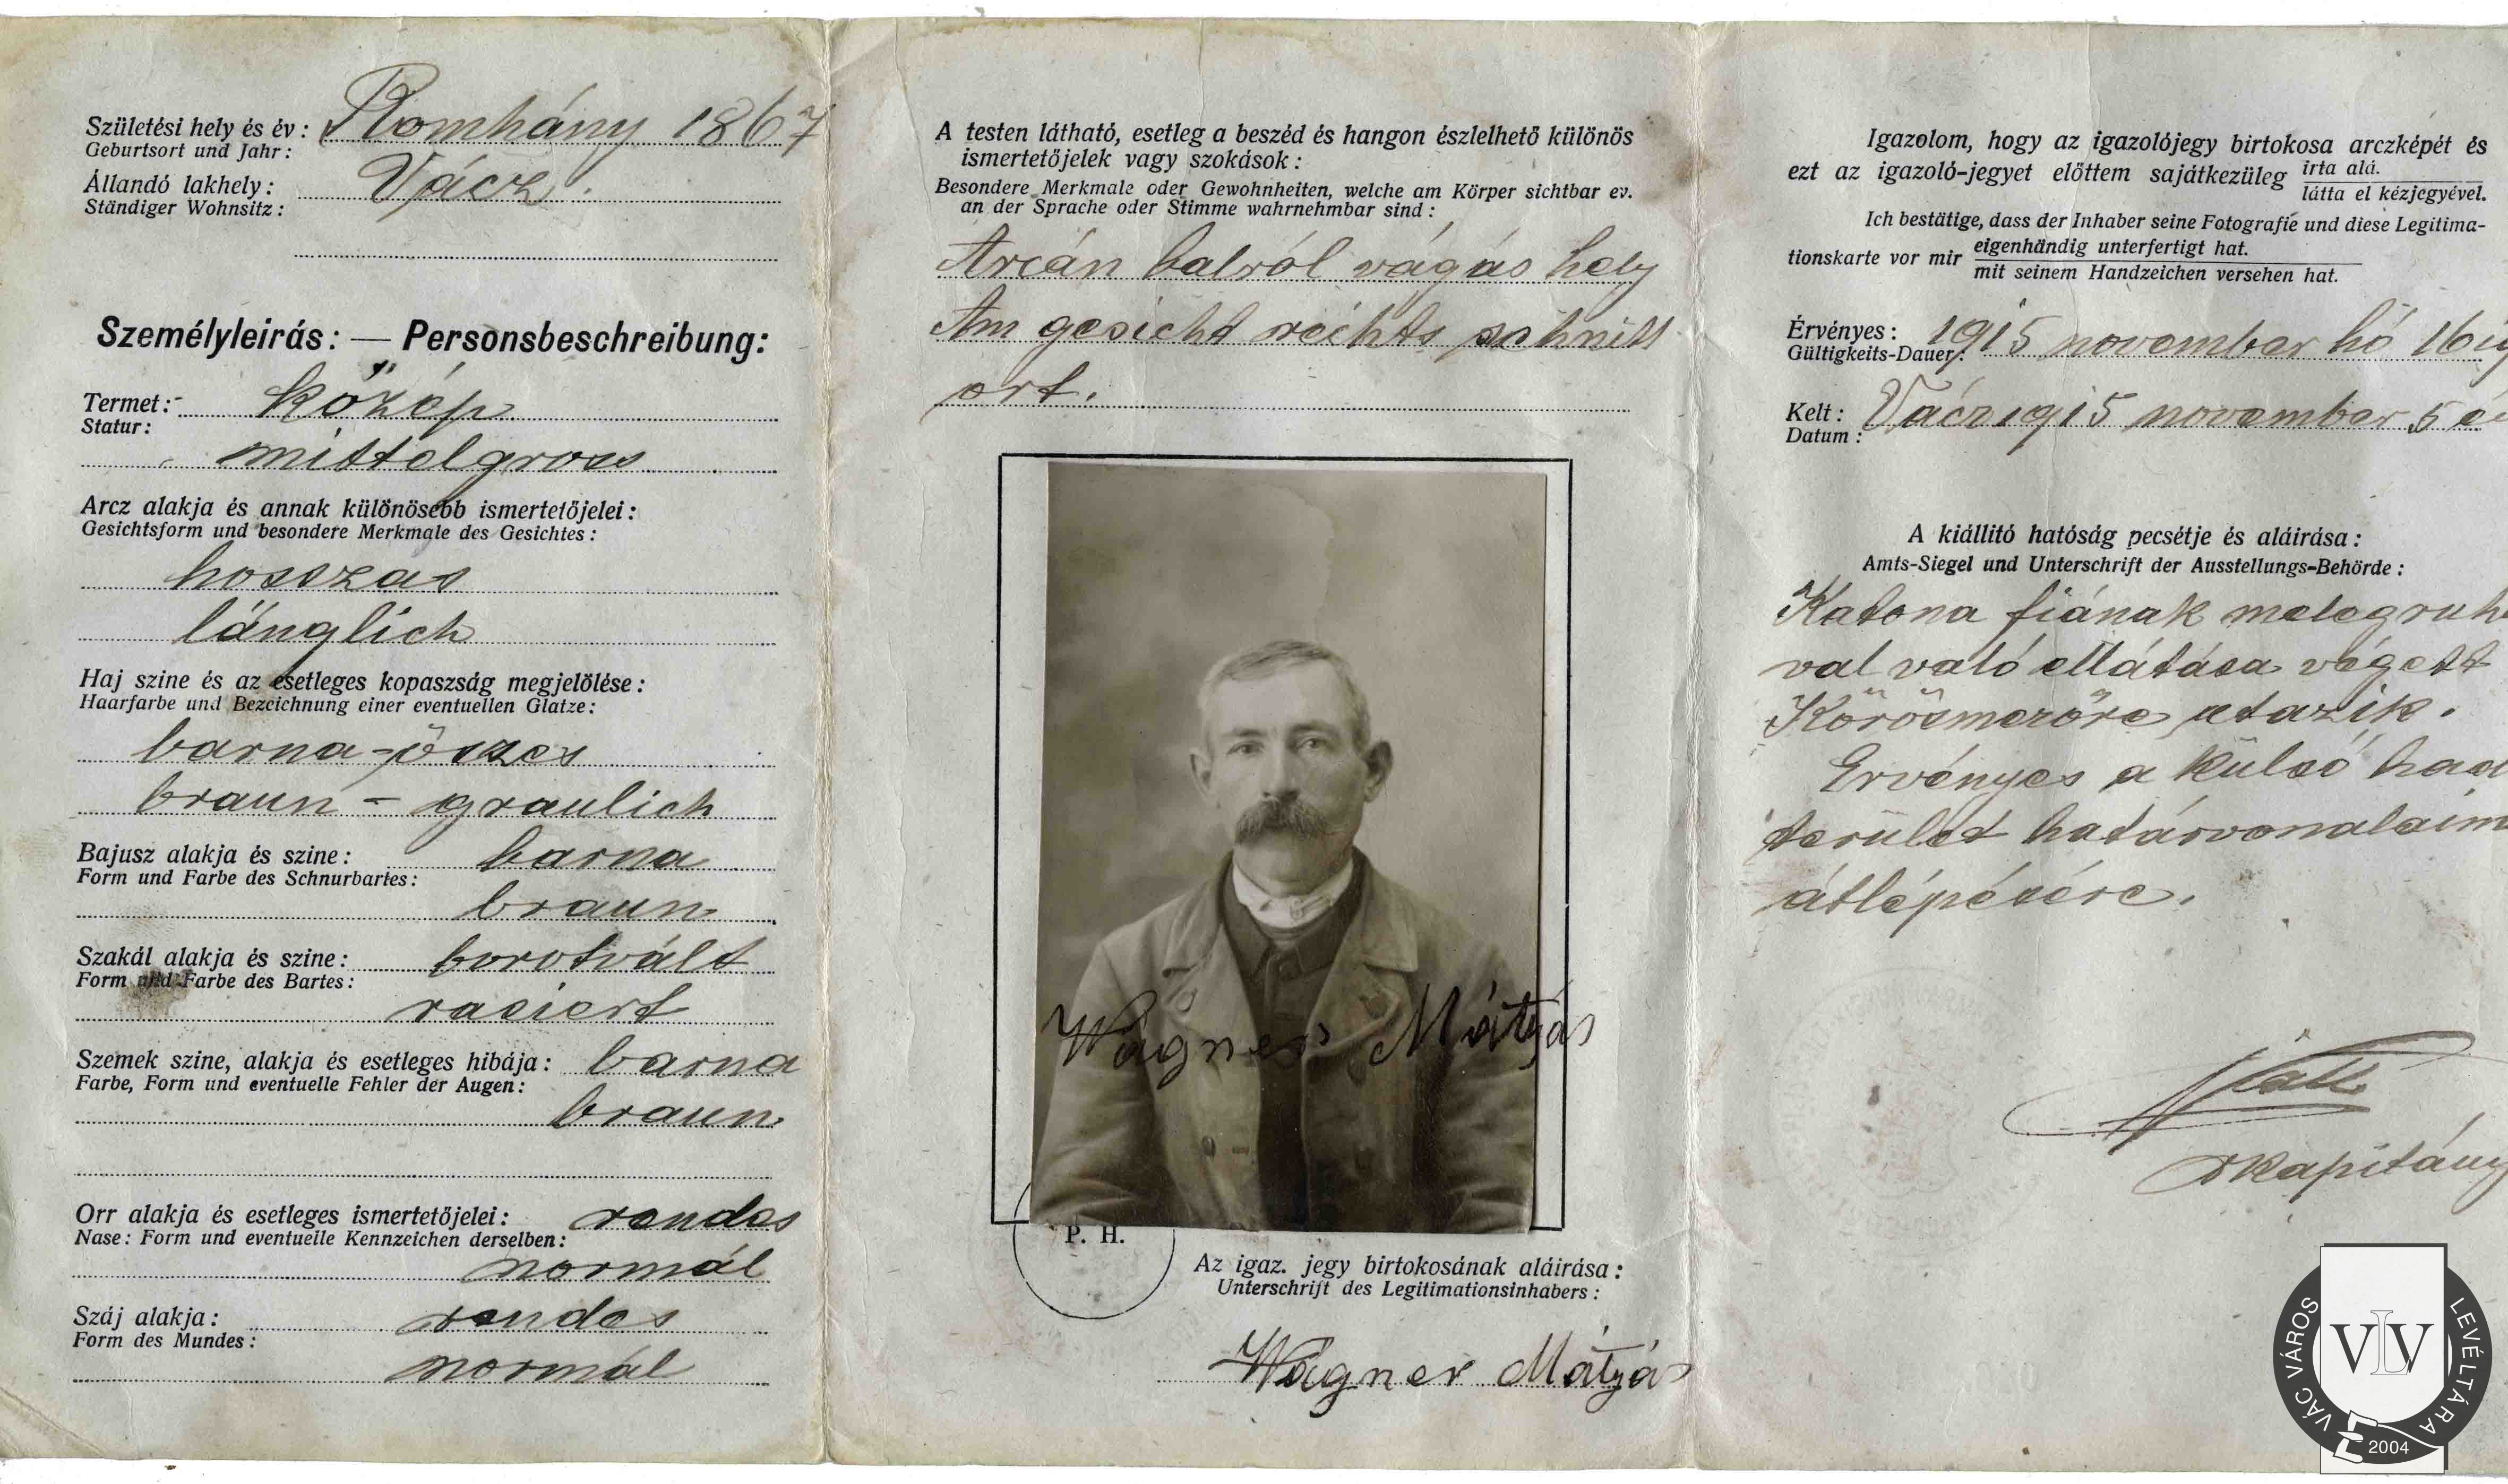 Születési hely és év: Romhány 1867
Geburtsort und Jahr:
Állandó lakhely: Vácz.
Ständiger Wohnsitz:
Személyleirás: — Personsbeschreibung:
Termet: közép
Statur:
mittelgross
Arcz alakja és annak különösebb ismertetőjelei:
Gesichtsform und besondere Merkmale des Gesichtes:
hosszas
länglich
Haj szine és az esetleges kopaszság megjelölése:
Haarfarbe und Bezeichnung einer eventuellen Glatze:
barna-őszes
braun - graulich
Bajusz alakja és szine: barna
Form und Farbe des Schnurbartes:
braun
Szakál alakja és szine: borotvált
Form und Farbe des Bartes:
rasiert
Szemek szine, alakja és esetleges hibája: barna
Farbe, Form und eventuelle Fehler der Augen:
braun
Orr alakja és esetleges ismertetőjelei: rendes
Nase: Form und eventuelle Kennzeichen derselben:
normál
Száj alakja: rendes
Form des Mundes:
normál
A testen látható, esetleg a beszéd és hangon észlelhető különös
ismertetőjelek vagy szokások:
Besondere Merkmale oder Gewohnheiten, welche am Körper sichtbar ev.
an der Sprache oder Stimme wahrnehmbar sind:
Arcán balról vágás hely
Am gesicht rechts schnitt
ort.
Wágner Mátyás
P. H.
Az igaz. jegy birtokosának aláirása:
Unterschrift des Legitimationsinhabers:
Wágner Mátyás
Igazolom, hogy az igazolójegy birtokosa arczképét és
ezt az igazoló-jegyet előttem sajátkezüleg irta alá.
látta el kézjegyével.
Ich bestätige, dass der Inhaber seine Fotografie und diese Legitima-
tionskarte vor mir eigenhändig unterfertigt hat.
mit seinem Handzeichen versehen hat.
Érvényes: 1915 november hó 16 ig
Gültigkeits-Dauer:
Kelt: Vácz 1915 november 5 én
Datum:
A kiállitó hatóság pecsétje és aláirása:
Amts-Siegel und Unterschrift der Ausstellungs-Behörde:
Katona fiának melegruhá
val való ellátása végett
Kőrösmezőre utazik.
Érvényes a külső had
terület határvonalaim
átlépésére.
rkapitány
VÁC VÁROS LEVÉLTÁRA
VLV
2004